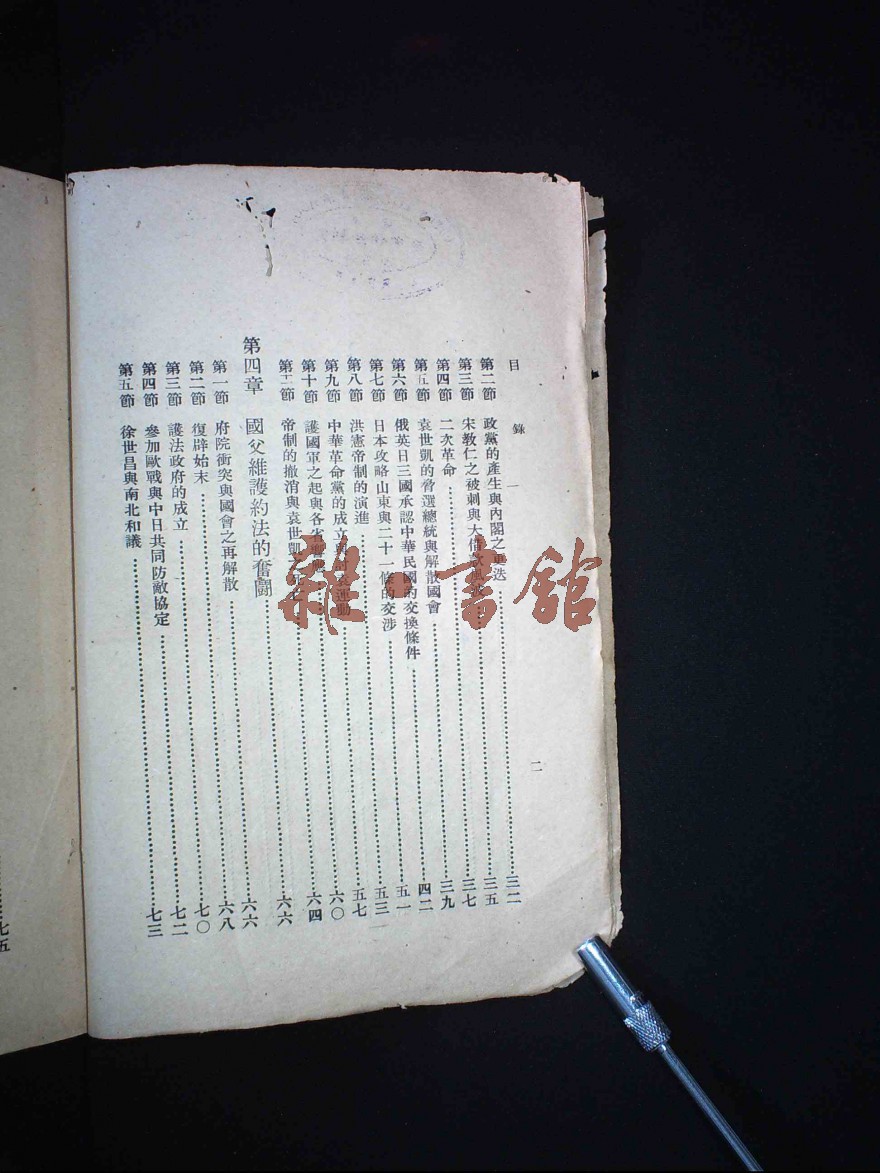 目錄 一
二
第二節 政黨的產生與內閣之更迭……三二
第三節 宋教仁之被刺與大借款風波……三五
第四節 二次革命……三七
第五節 袁世凱的脅選總統與解散國會……三九
第六節 俄英日三國承認中華民國的交換條件……四二
第七節 日本攻略山東與二十一條的交涉……五一
第八節 洪憲帝制的演進……五三
第九節 中華革命黨的成立與討袁運動……五七
第十節 護國軍之起與各省響應……六〇
第十一節 帝制的撤消與袁世凱之死……六四
第四章 國父維護約法的奮鬪……六六
第一節 府院衝突與國會之再解散……六六
第二節 復辟始末……六八
第三節 護法政府的成立……七〇
第四節 參加歐戰與中日共同防敵協定……七二
第五節 徐世昌與南北和議……七三
七五
雜·書館